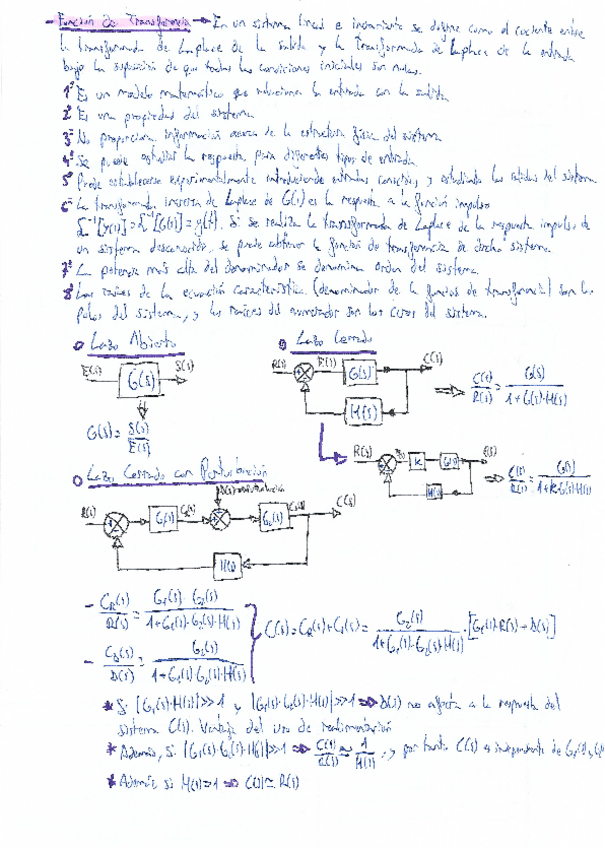 - Función de Transferencia → En un sistema lineal e invariante se define como el cociente entre
la transformada de Laplace de la salida y la transformada de Laplace de la entrada
bajo la suposición de que todas las condiciones iniciales son nulas.
1º Es un modelo matemático que relaciona la entrada con la salida
2º Es una propiedad del sistema
3º No proporciona información acerca de la estructura física del sistema
4º Se puede estudiar la respuesta para diferentes tipos de entrada
5º Puede establecerse experimentalmente introduciendo entradas conocidas y estudiando las salidas del sistema
6º La transformada inversa de Laplace de G(s) es la respuesta a la función impulso
L⁻¹[Y(s)] = L⁻¹[G(s)] = g(t). Si se realiza la transformada de Laplace de la respuesta impulso de
un sistema desconocido, se puede obtener la función de transferencia de dicho sistema.
7º La potencia más alta del denominador se denomina orden del sistema.
8º Las raíces de la ecuación característica (denominador de la función de transferencia) son los
polos del sistema, y las raíces del numerador son los ceros del sistema.
Lazo Abierto
E(s) G(s) S(s)
G(s) = S(s)/E(s)
Lazo Cerrado
R(s) G(s) C(s)
H(s)
⇒ C(s)/R(s) = G(s)/1+G(s)·H(s)
R(s) K G(s)
H(s)
⇒ C(s)/R(s) = G(s)/1+K·G(s)·H(s)
Lazo Cerrado con Perturbación
R(s) G₁(s) G₂(s) C(s)
H(s)
- C_R(s)/R(s) = G₁(s)·G₂(s)/1+G₁(s)·G₂(s)·H(s)
- C_D(s)/D(s) = G₂(s)/1+G₁(s)·G₂(s)·H(s)
C(s) = C_R(s)+C_D(s) = G₂(s)/1+G₁(s)·G₂(s)·H(s) · [G₁(s)·R(s)+D(s)]
* Si |G₁(s)·H(s)| >> 1 y |G₁(s)·G₂(s)·H(s)| >> 1 ⇒ D(s) no afecta a la respuesta del
sistema C(s). Ventaja del uso de realimentación
* Además, si |G₁(s)·G₂(s)·H(s)| >> 1 ⇒ C(s)/R(s) ≈ 1/H(s), y por tanto C(s) es independiente de G₁(s),
* Además si H(s)=1 ⇒ C(s) ≈ R(s)